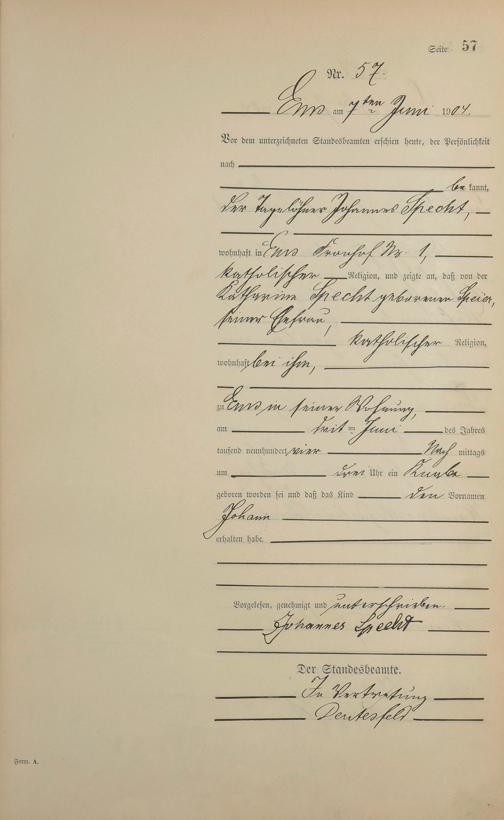 Seite 57
Nr. 57.
Ems am 7ten Juni 1904.
Vor dem unterzeichneten Standesbeamten erschien heute, der Persönlichkeit
nach
bekannt,
der Tagelöhner Johannes Specht,
wohnhaft in Ems Fronhof Nr. 1,
katholischer Religion, und zeigte an, daß von der
Katharine Specht geborenen Speier,
seiner Ehefrau,
katholischer Religion,
wohnhaft bei ihm,
zu Ems in seiner Wohnung,
am dritten Juni des Jahres
tausend neunhundert vier Nachmittags
um drei Uhr ein Knabe
geboren worden sei und daß das Kind den Vornamen
Johann
erhalten habe.
Vorgelesen, genehmigt und unterschrieben.
Johannes Specht
Der Standesbeamte.
In Vertretung
Form. A.